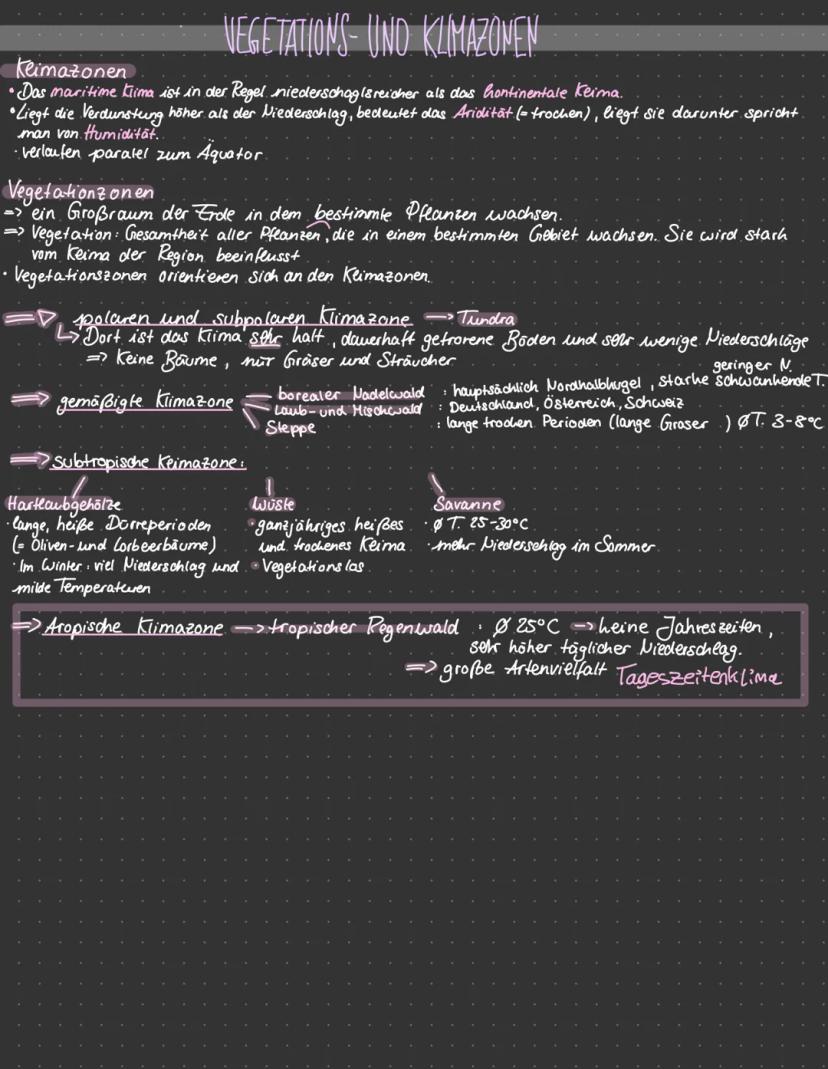 VEGETATIONS- UND KLIMAZONEN
Klimazonen
• Das maritime Klima ist in der Regel niederschaglsreicher als das kontinentale Klima.
• Liegt die Verdunstung höher als der Niederschlag, bedeutet das Aridität (= trocken), liegt sie darunter spricht
man von Humidität.
· verlaufen paralel zum Äquator
Vegetationzonen
=> ein Großraum der Erde in dem bestimmte Pflanzen wachsen.
=> Vegetation: Gesamtheit aller Pflanzen, die in einem bestimmten Gebiet wachsen. Sie wird stark
vom Klima der Region beeinflusst
· Vegetationszonen orientieren sich an den Klimazonen.
=> polaren und subpolaren Klimazone —> Tundra
↳ Dort ist das Klima sehr kalt, dauerhaft gefrorene Böden und sehr wenige Niederschläge
=> Keine Bäume, nur Gräser und Sträucher
geringer N.
=> gemäßigte Klimazone
borealer Nadelwald : hauptsächlich Nordhalbkugel, starke schwankende T.
Laub- und Mischwald : Deutschland, Österreich, Schweiz
Steppe : lange trocken Perioden (lange Graser ) Ø T. 3-8°C
=> Subtropische Klimazone:
Hartlaubgehölze
· lange, heiße Dürreperioden
(= Oliven- und Lorbeerbäume)
· Im Winter: viel Niederschlag und
milde Temperaturen
Wüste
• ganzjähriges heißes
und trockenes Klima
• Vegetationslos
Savanne
· Ø T. 25-30°C
· mehr Niederschlag im Sommer
=> Tropische Klimazone —> tropischer Regenwald : Ø 25°C —> keine Jahreszeiten,
sehr höher täglicher Niederschlag.
=> große Artenvielfalt Tageszeitenklima